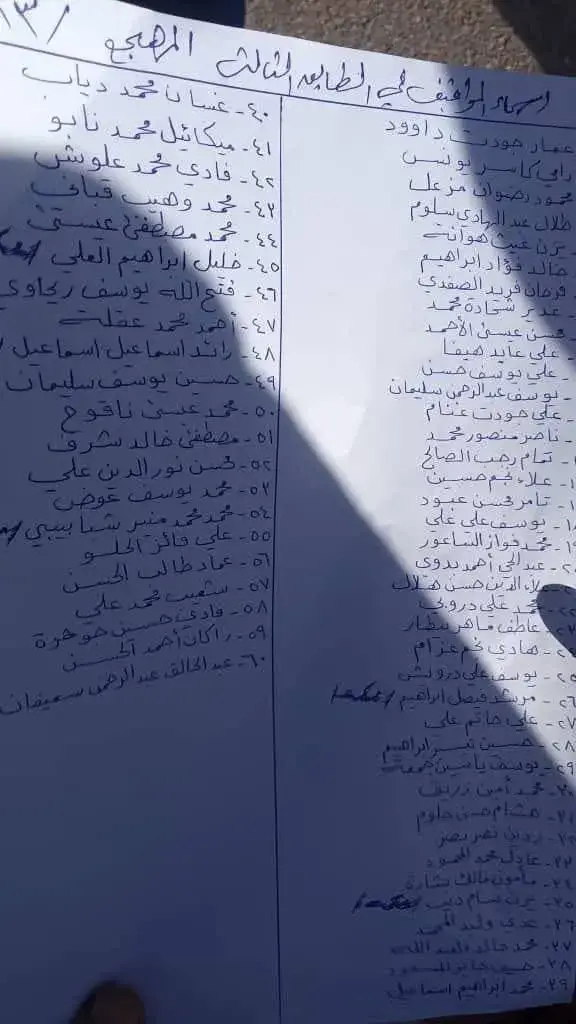 اسماء المواقيف في الطابق الثالث المهجع /١٣
عمار جودت داوود
رامي كاسر يونس
محمود رضوان مزعل
طلال عبد الهادي سلوم
يزن غيث هوانة
خالد فؤاد ابراهيم
فرحان فريد الصفدي
غدير شحادة محمد
محسن عيسى الأحمد
علي عابد هيفا
علي يوسف حسن
يوسف عبد الرحمن سليمان
علي جودت غنام
ناصر منصور محمد
تمام رجب الصالح
علاء نجم حسين
ثامر محسن عبود
١٨- يوسف علي علي
١٩- محمد فواز الشاعور
عبد الحي أحمد بدوي
علاء الدين حسن هلال
محمد علي دروبي
عاطف ماهر بيطار
هادي نجم عزام
٢٥- يوسف علي درويش
٢٦- مرشد فيصل ابراهيم
٢٧- علي حاتم علي
٢٨- حسين ابراهيم
٢٩- يوسف ياسين جمعة
٣٠- محمد أمين
٣١- هشام حسن سلوم
٣٢- نصر
٣٣- عادل محمد المحمود
٣٤- مأمون مالك بشارة
٣٥- يزن بسام ديب
٣٦- عدي وليد المحمد
٣٧- محمد خالد
٣٨-
٣٩- محمد ابراهيم اسماعيل
٤٠- غسان محمد دياب
٤١- ميكائيل محمد نابو
٤٢- فادي محمد علوش
٤٣- محمد وهيب قباني
٤٤- محمد مصطفى عيسى
٤٥- خليل ابراهيم العلي
٤٦- فتح الله يوسف ريحاوي
٤٧- أحمد محمد عقلة
٤٨- رائد اسماعيل اسماعيل
٤٩- حسين يوسف سليمان
٥٠- محمد عيسى ناقوح
٥١- مصطفى خالد شرف
٥٢- محسن نور الدين علي
٥٣- محمد يوسف عوض
٥٤- محمد محمد منير شبابيبي
٥٥- علي فائز الحلو
٥٦- عماد طالب الحسن
٥٧- شعيب محمد علي
٥٨- فادي حسين جوخرة
٥٩- راكان أحمد الحسن
٦٠- عبد الخالق عبد الرحمن سميفان